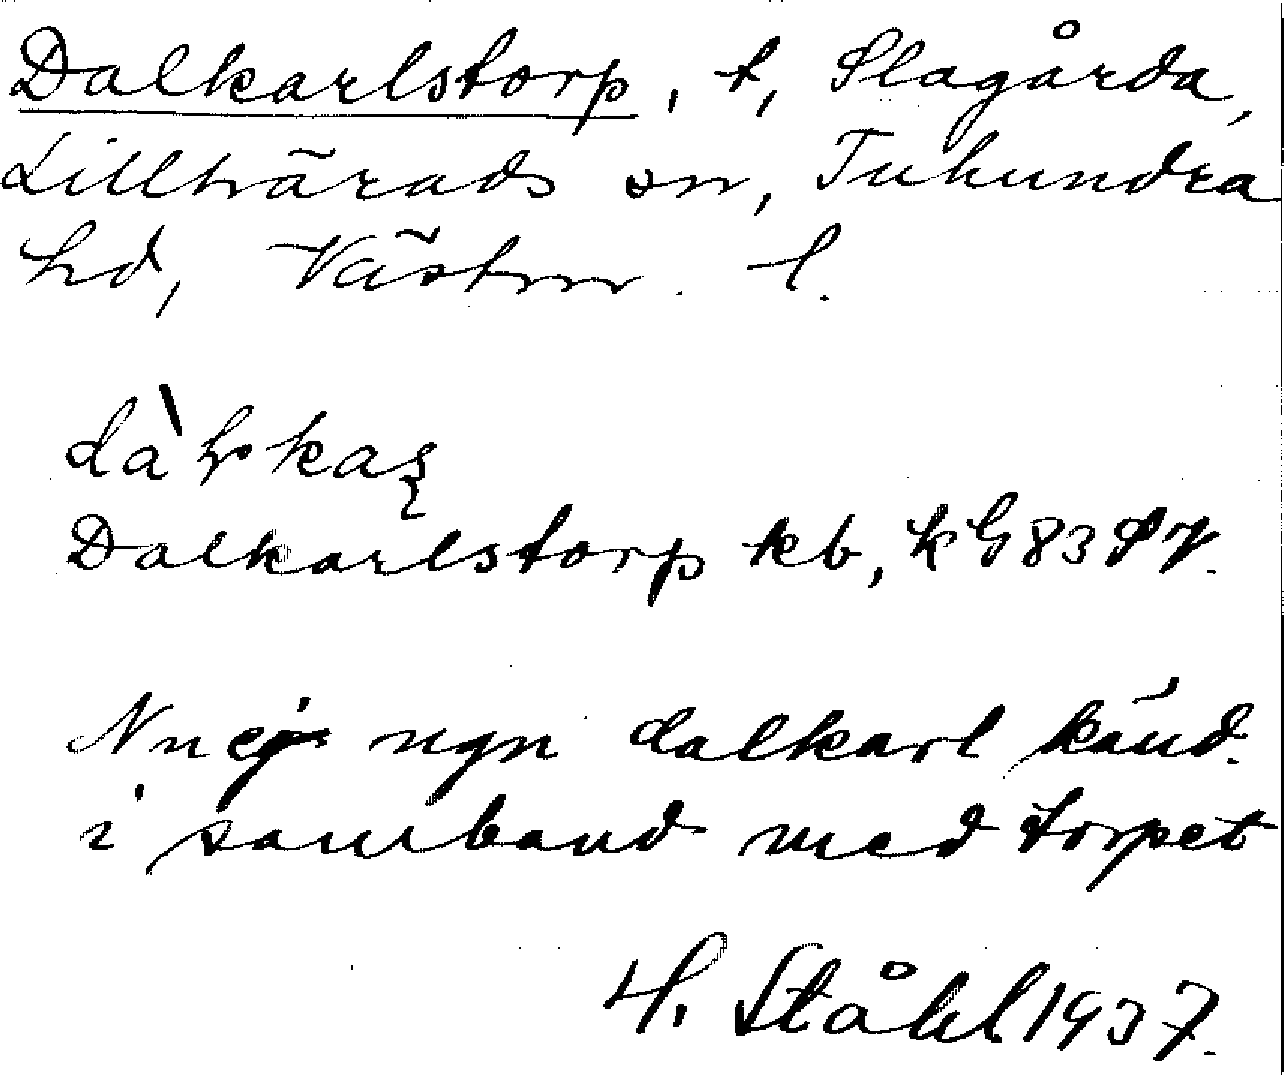 Dalkarlstorp, t, Slagårda,
Lillhärads sn, Tuhundra
hd, Västm. l.
Dalkarlstorp kb, kG83SV.
Nu ej ngn dalkarl känd
i samband med torpet
H. Ståhl 1937.